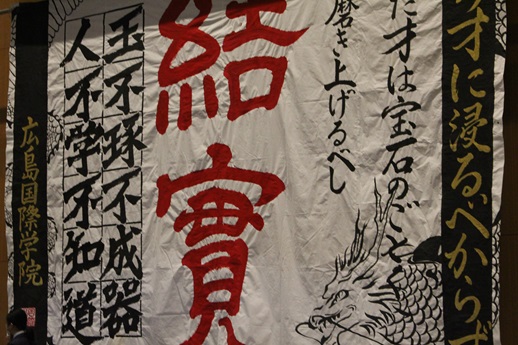 才に浸るべからず
た才は宝石のごとく
磨き上げるべし
結實
玉不琢不成器
人不学不知道
広島国際学院